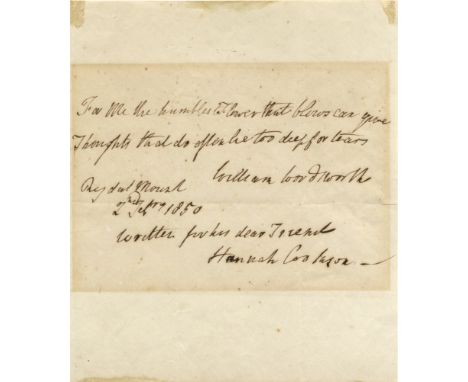 For Me the humblest Flower that blows can give
Thoughts that do often lie too deep for tears
William Wordsworth
Rydal Mount
2nd Febry 1850
Written for his dear Friend
Hannah Cookson